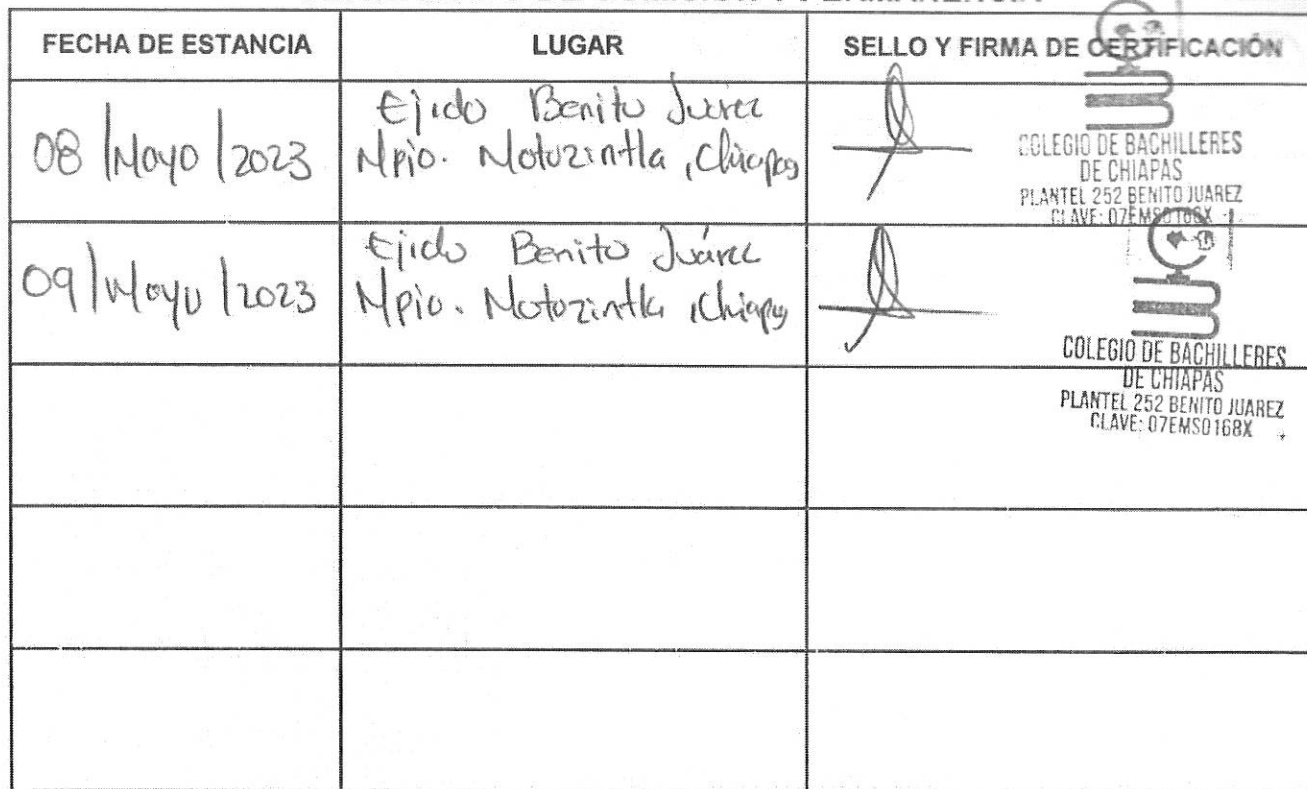 FECHA DE ESTANCIA
LUGAR
SELLO Y FIRMA DE CERTIFICACIÓN
08/Mayo/2023
Ejido Benito Juárez
Mpio. Motozintla, Chiapas
COLEGIO DE BACHILLERES
DE CHIAPAS
PLANTEL 252 BENITO JUAREZ
CLAVE: 07EMS0168X
09/Mayo/2023
Ejido Benito Juárez
Mpio. Motozintla, Chiapas
COLEGIO DE BACHILLERES
DE CHIAPAS
PLANTEL 252 BENITO JUAREZ
CLAVE: 07EMS0168X